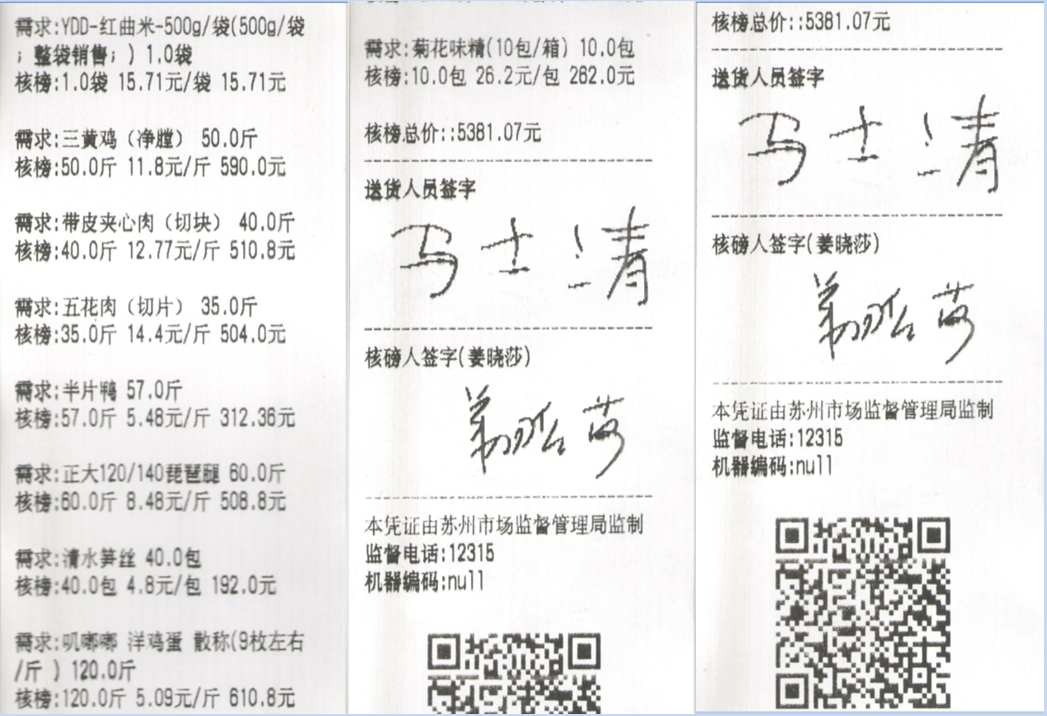 需求:YDD-红曲米-500g/袋(500g/袋
；整袋销售；) 1.0袋
核榜:1.0袋 15.71元/袋 15.71元
需求:三黄鸡（净膛） 50.0斤
核榜:50.0斤 11.8元/斤 590.0元
需求:带皮夹心肉（切块） 40.0斤
核榜:40.0斤 12.77元/斤 510.8元
需求:五花肉（切片） 35.0斤
核榜:35.0斤 14.4元/斤 504.0元
需求:半片鸭 57.0斤
核榜:57.0斤 5.48元/斤 312.36元
需求:正大120/140琵琶腿 60.0斤
核榜:60.0斤 8.48元/斤 508.8元
需求:清水笋丝 40.0包
核榜:40.0包 4.8元/包 192.0元
需求:叽嘟嘟 洋鸡蛋 散称(9枚左右
/斤 ) 120.0斤
核榜:120.0斤 5.09元/斤 610.8元
需求:菊花味精(10包/箱) 10.0包
核榜:10.0包 26.2元/包 262.0元
核榜总价::5381.07元
送货人员签字
马士清
核磅人签字(姜晓莎)
本凭证由苏州市场监督管理局监制
监督电话:12315
机器编码:null
核榜总价::5381.07元
送货人员签字
马士清
核磅人签字(姜晓莎)
本凭证由苏州市场监督管理局监制
监督电话:12315
机器编码:null